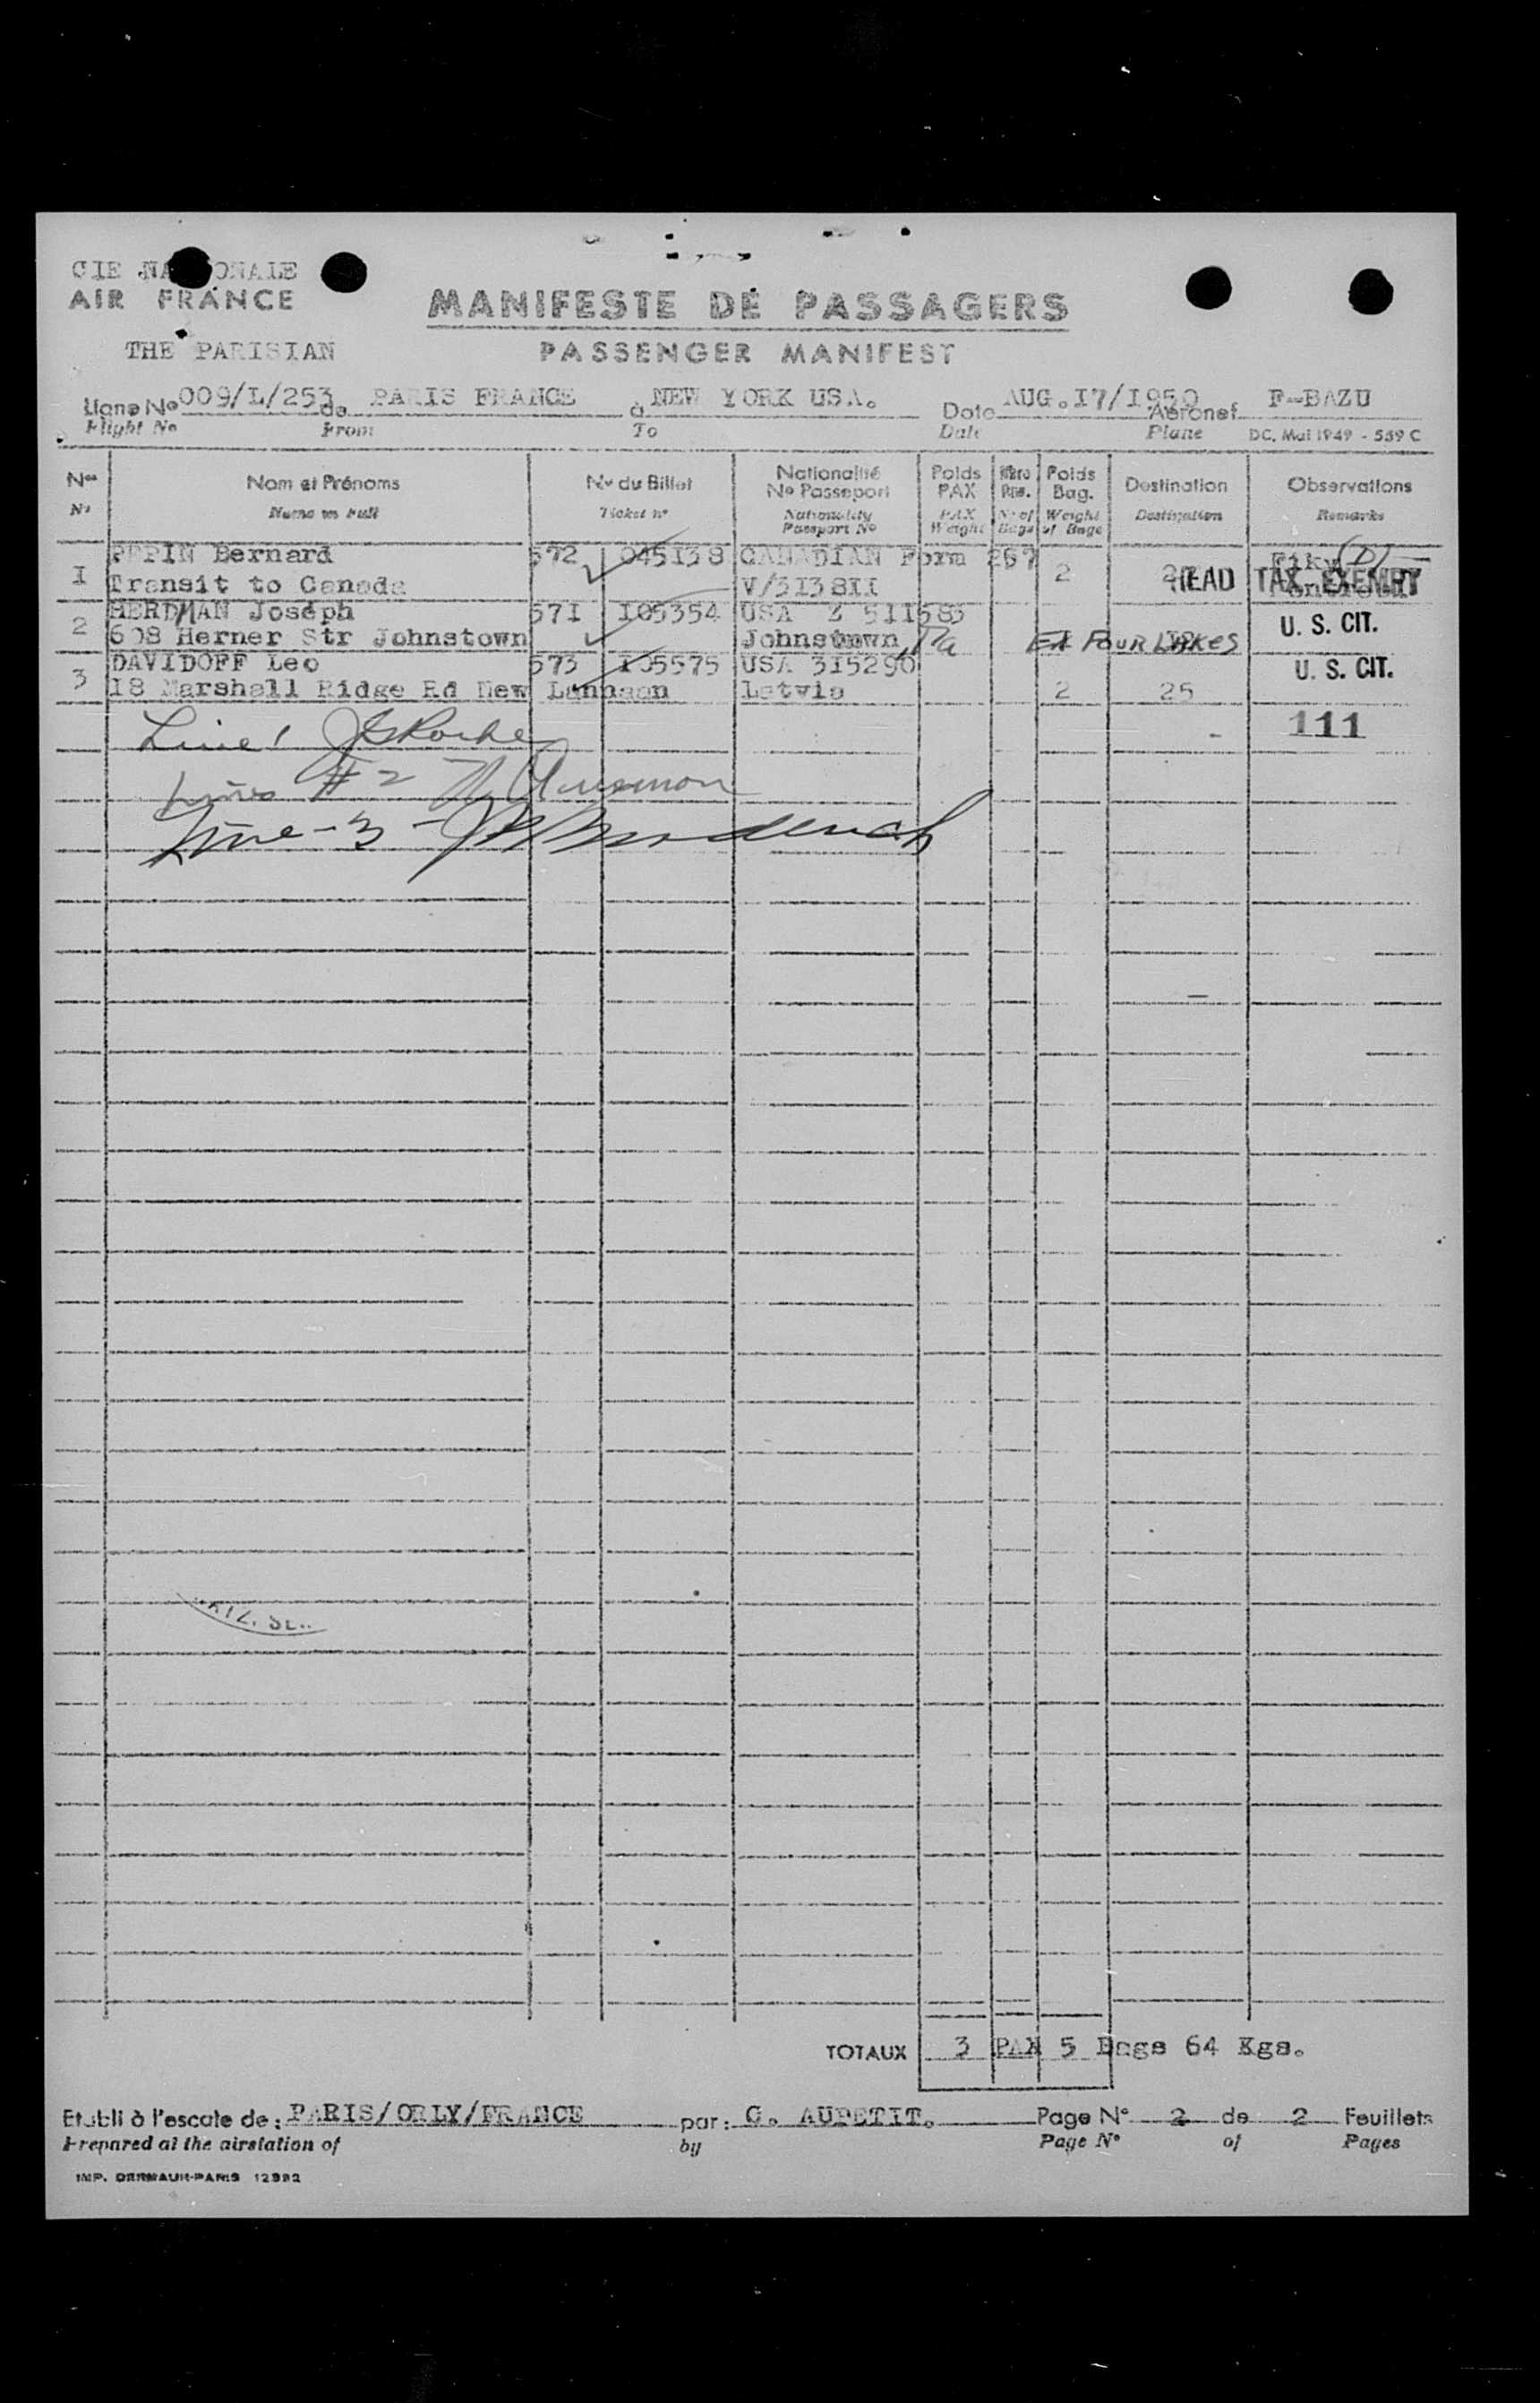 CIE NATIONALE
AIR FRANCE
MANIFESTE DE PASSAGERS
THE PARISIAN
PASSENGER MANIFEST
Ligne No 009/L/253 de PARIS FRANCE à NEW YORK USA. Date AUG.I7/I950 Aéronef F-BAZU
Flight No From To Date Plane DC. Mai 1949 - 559 C
Nos Nom et Prénoms No du Billet Nationalité No Passeport Poids PAX Poids Bag. Destination Observations
No Name in full Ticket no Nationality Passport No PAX Weight No of Bags Weight of Bags Destination Remarks
1 PEPIN Bernard 572 045138 CANADIAN Form 257 (D)
Transit to Canada V/313811 2 HEAD TAX EXEMPT
2 HERDMAN Joseph 571 105354 USA Z 511583 U. S. CIT.
608 Herner Str Johnstown Johnstown, Pa EX FOUR LAKES
3 DAVIDOFF Leo 573 105575 USA 315290 U. S. CIT.
18 Marshall Ridge Rd New Lannaan Latvia 2 25
111
Line 1
Line #2
Line - 3 -
TOTAUX 3 PAX 5 Bags 64 Kgs.
Etabli à l'escale de: PARIS/ORLY/FRANCE par: G. AUPETIT. Page No 2 de 2 Feuillets
Prepared at the airstation of by Page No of Pages
IMP. DERMAUX-PARIS 12992